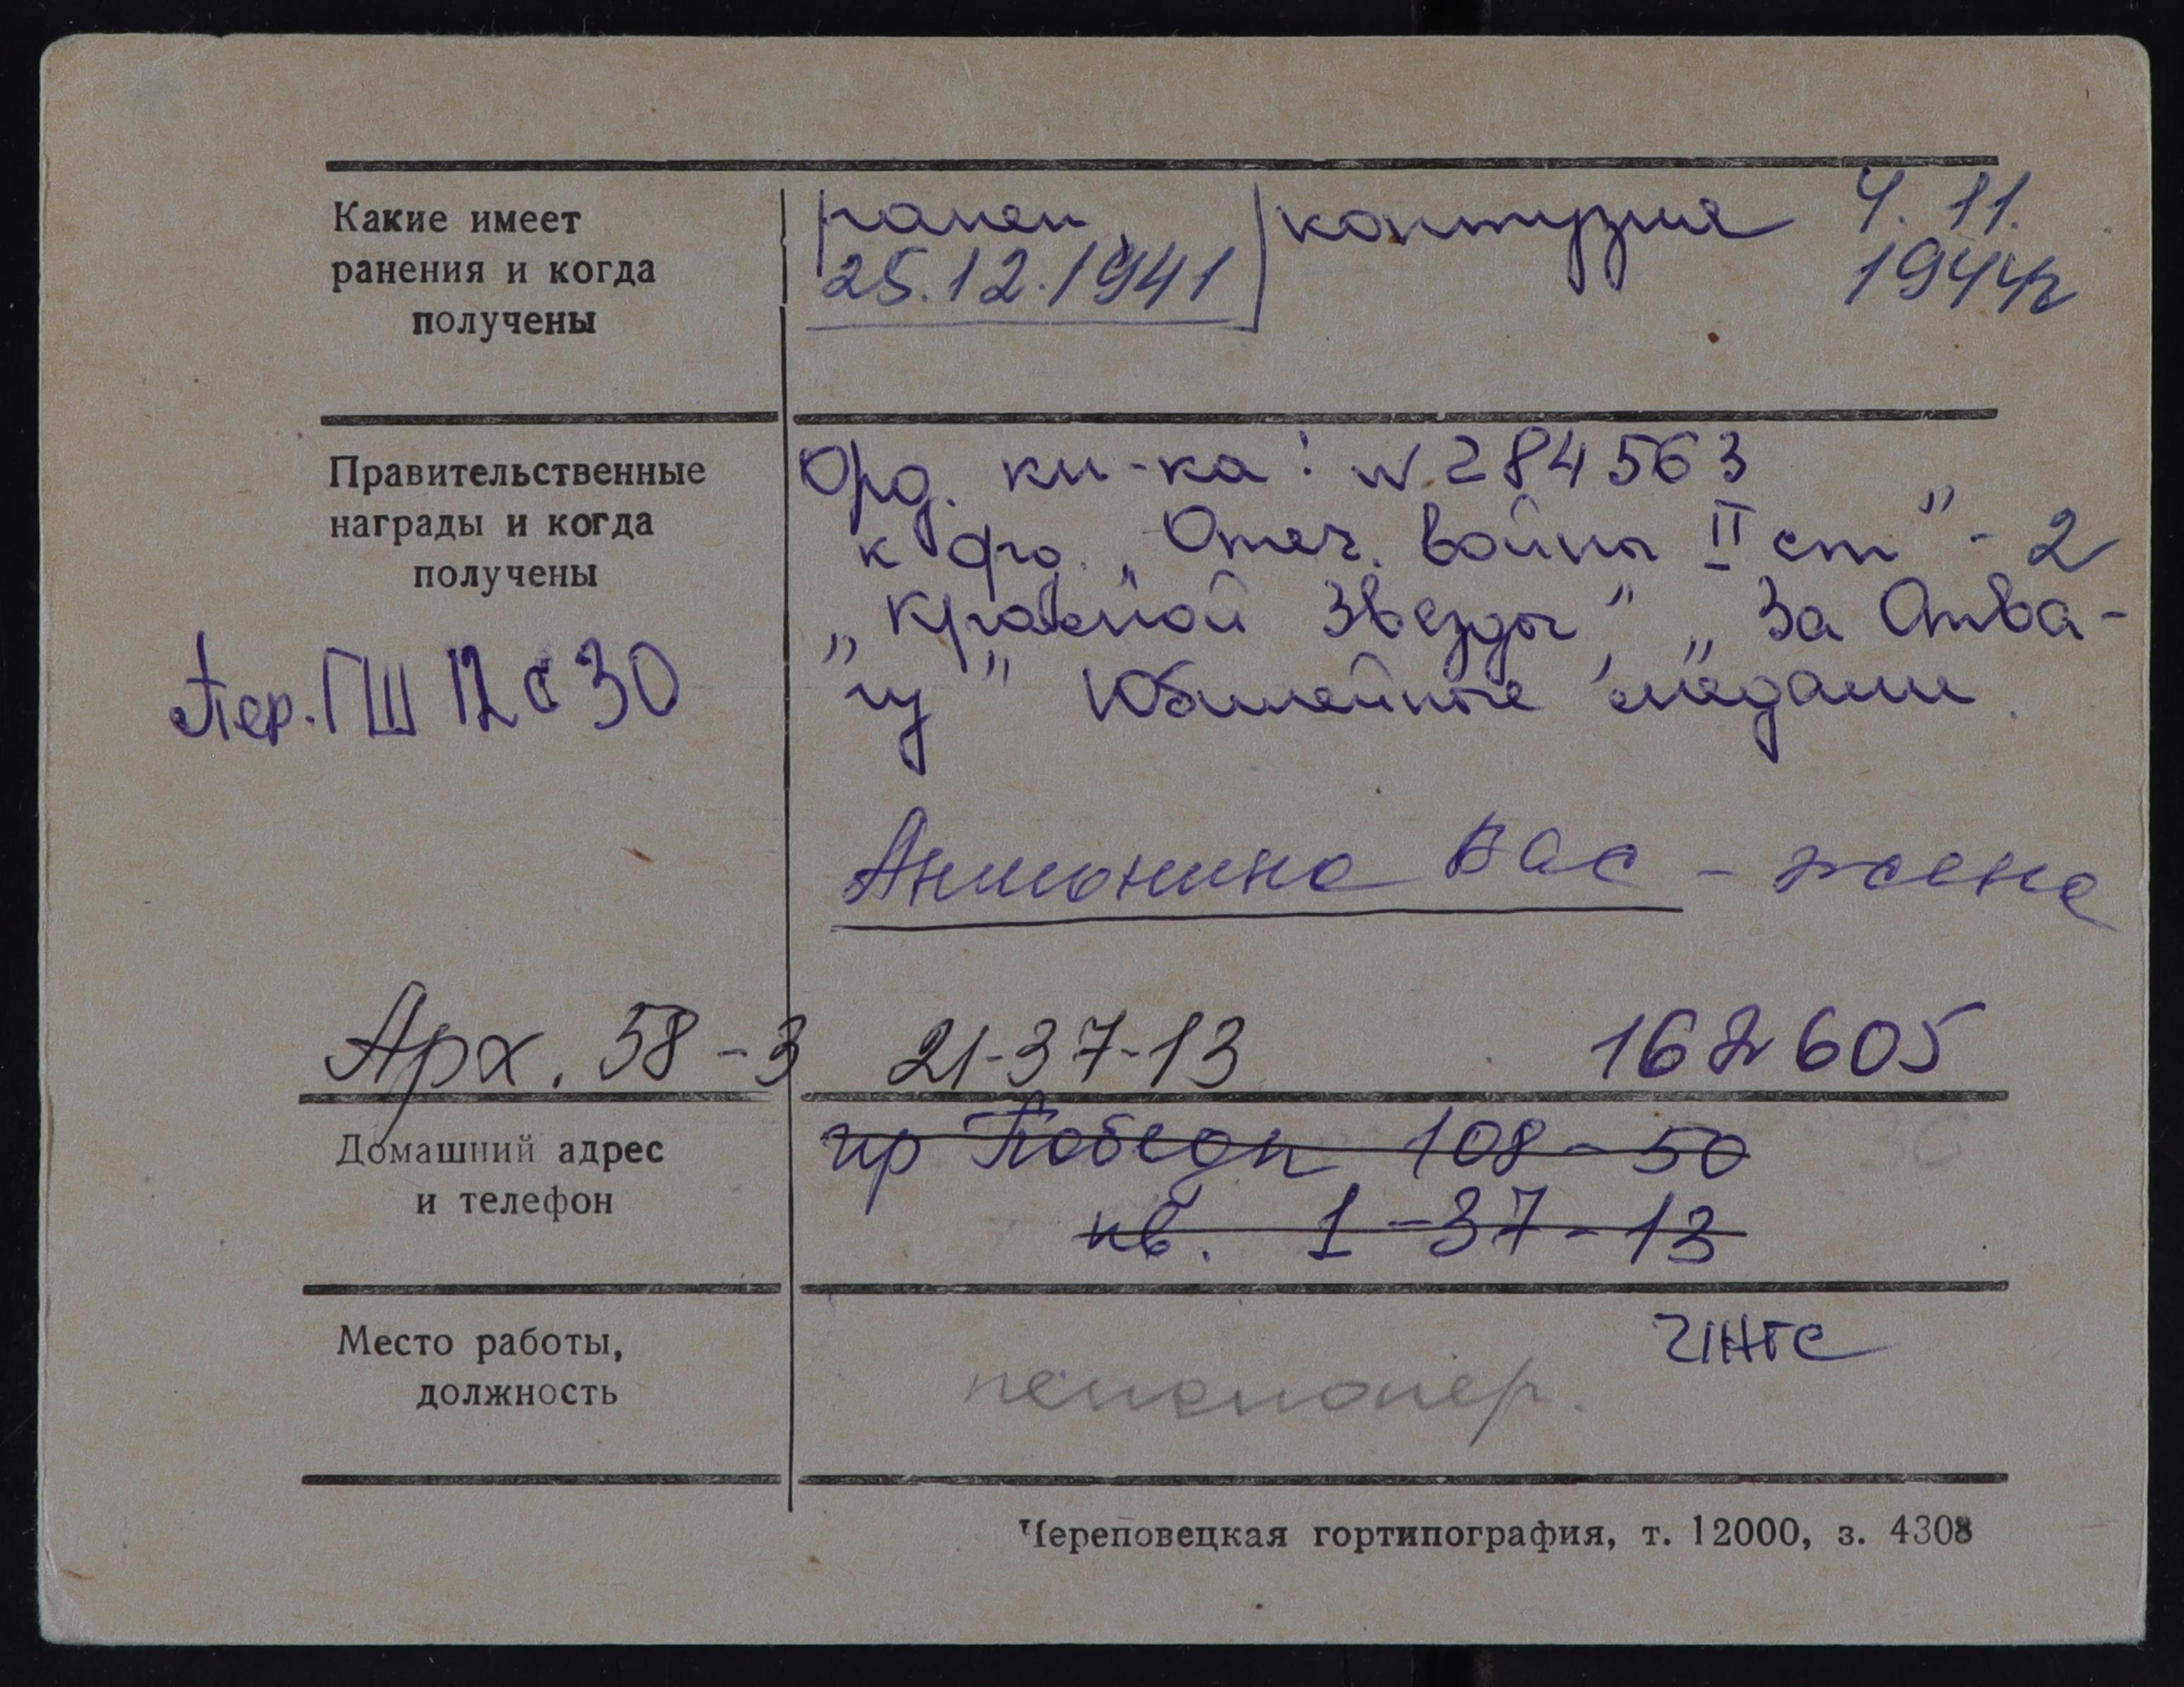 Какие имеет
ранения и когда
получены
ранен контузия 4. 11.
25.12.1941 1944г
Правительственные
награды и когда
получены
Орд. кн-ка: № 284563
к орд. „Отеч. войны II ст" - 2
„Красной Звезды", „За Отва-
гу" Юбилейные медали.
Пер. ГШ 12 с 30
Антонина Вас - жена
Арх. 58-3 21-37-13 162605
Домашний адрес
и телефон
пр Победы 108-50
кв. 1-37-13
Место работы,
должность
пенсионер.
Череповецкая гортипография, т. 12000, з. 4308